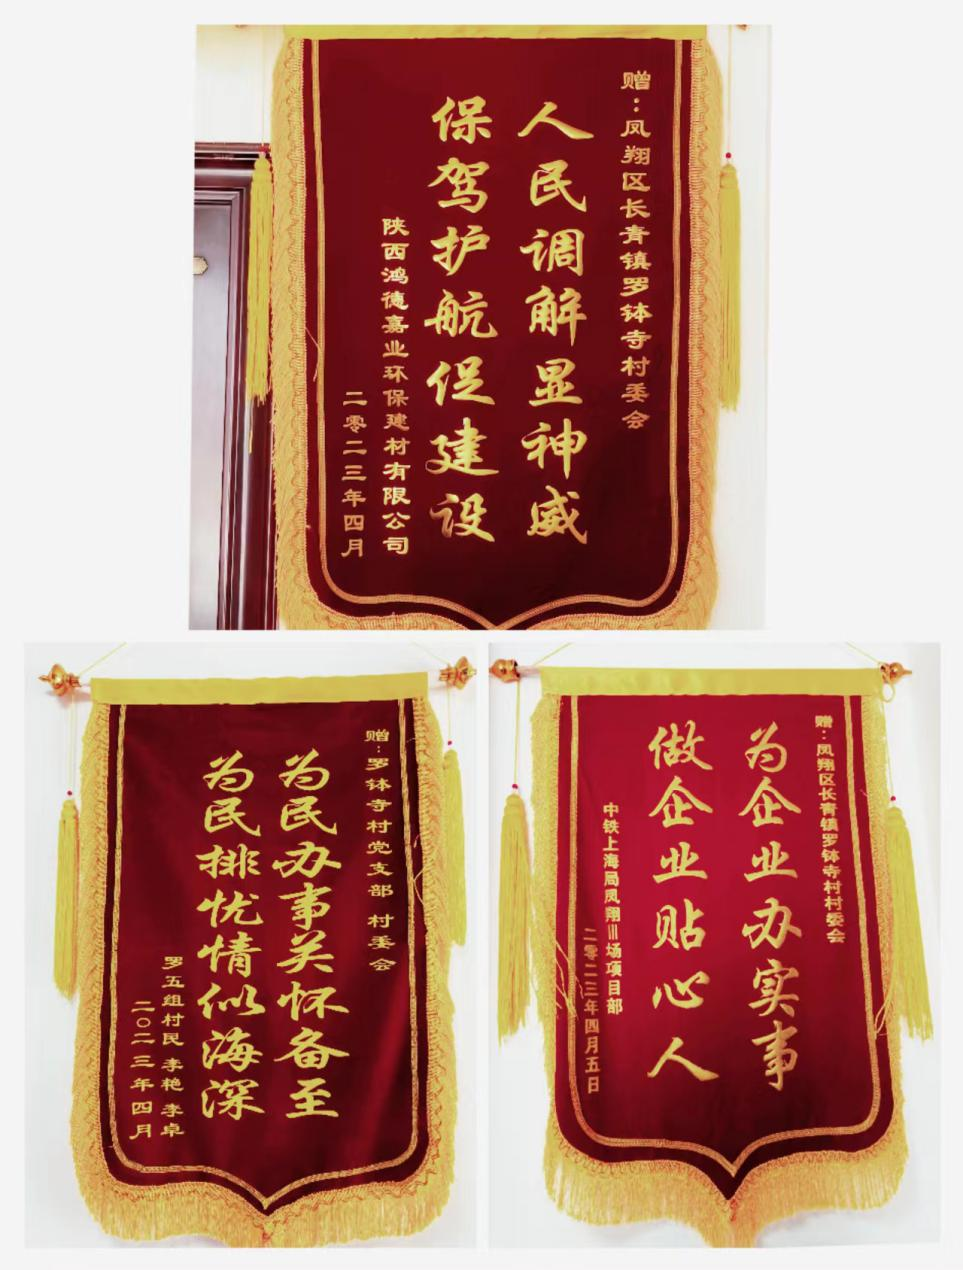 赠：凤翔区长青镇罗钵寺村委会
人民调解显神威
保驾护航促建设
陕西鸿德嘉业环保建材有限公司
二零二三年四月
赠：罗钵寺村党支部 村委会
为民办事关怀备至
为民排忧情似海深
罗五组村民 李艳 李卓
二〇二三年四月
赠：凤翔区长青镇罗钵寺村村委会
为企业办实事
做企业贴心人
中铁上海局凤翔Ⅲ场项目部
二零二三年四月五日